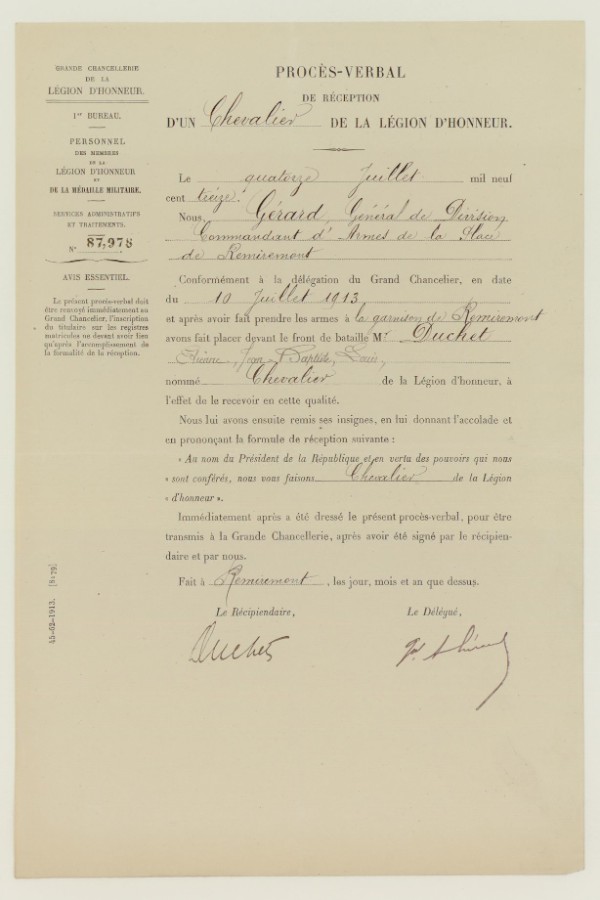 GRANDE CHANCELLERIE
DE LA
LÉGION D'HONNEUR.
1er BUREAU.
PERSONNEL
DES MEMBRES
DE LA
LÉGION D'HONNEUR
ET
DE LA MÉDAILLE MILITAIRE.
SERVICES ADMINISTRATIFS
ET TRAITEMENTS.
N° 87,978
AVIS ESSENTIEL.
Le présent procès-verbal doit
être renvoyé immédiatement au
Grand Chancelier, l'inscription
du titulaire sur les registres
matricules ne devant avoir lieu
qu'après l'accomplissement de
la formalité de la réception.
45-62-1913.
PROCÈS-VERBAL
DE RÉCEPTION
D'UN Chevalier DE LA LÉGION D'HONNEUR.
Le quatorze Juillet mil neuf
cent treize.
Nous, Gérard, Général de Division
Commandant d'Armes de la Place
de Remiremont
Conformément à la délégation du Grand Chancelier, en date
du 10 Juillet 1913
et après avoir fait prendre les armes à la garnison de Remiremont
avons fait placer devant le front de bataille Mr Duchet
Jean Baptiste, Louis,
nommé Chevalier de la Légion d'honneur, à
l'effet de le recevoir en cette qualité.
Nous lui avons ensuite remis ses insignes, en lui donnant l'accolade et
en prononçant la formule de réception suivante :
« Au nom du Président de la République et en vertu des pouvoirs qui nous
» sont conférés, nous vous faisons Chevalier de la Légion
» d'honneur ».
Immédiatement après a été dressé le présent procès-verbal, pour être
transmis à la Grande Chancellerie, après avoir été signé par le récipien-
daire et par nous.
Fait à Remiremont, les jour, mois et an que dessus.
Le Récipiendaire,
Le Délégué,
Duchet